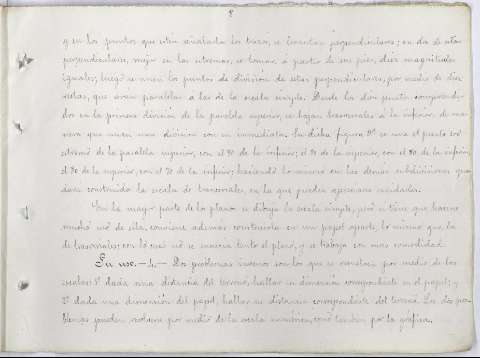 8
y en los puntos que estén señalada la traza, se levantan perpendiculares; en dos de estas
perpendiculares, mejor en las extremas, se toman á partir de sus pies, diez magnitudes
iguales; luego se unen los puntos de division de estas perpendiculares, por medio de diez
rectas, que serán paralelas á las de la escala simple. Desde los diez puntos comprendi-
dos en la primera division de la paralela superior, se bajan trasversales á la inferior, de ma-
nera que unan una division con su inmediata. En dicha figura 9ª se une el punto
extremo de la paralela superior, con el 90 de la inferior; el 90 de la superior, con el 80 de la inferior;
el 80 de la superior, con el 70 de la inferior; haciendo lo mismo en las demás subdivisiones que-
dará construida la escala de trasversales, en la que pueden apreciarse unidades.
En la mayor parte de los planos se dibuja la escala simple, pero si tiene que hacerse
mucho uso de ella, conviene además construirla en un papel aparte, lo mismo que la
de trasversales; con lo cual no se ensucia tanto el plano, y se trabaja con mas comodidad.
Su uso.—4.— Dos problemas inversos son los que se resuelven por medio de las
escalas: 1º dada una distancia del terreno, hallar su dimension correspondiente en el papel; y
2º dada una dimension del papel, hallar su distancia correspondiente del terreno. Los dos pro-
blemas pueden resolverse por medio de la escala numérica, como tambien por la gráfica.